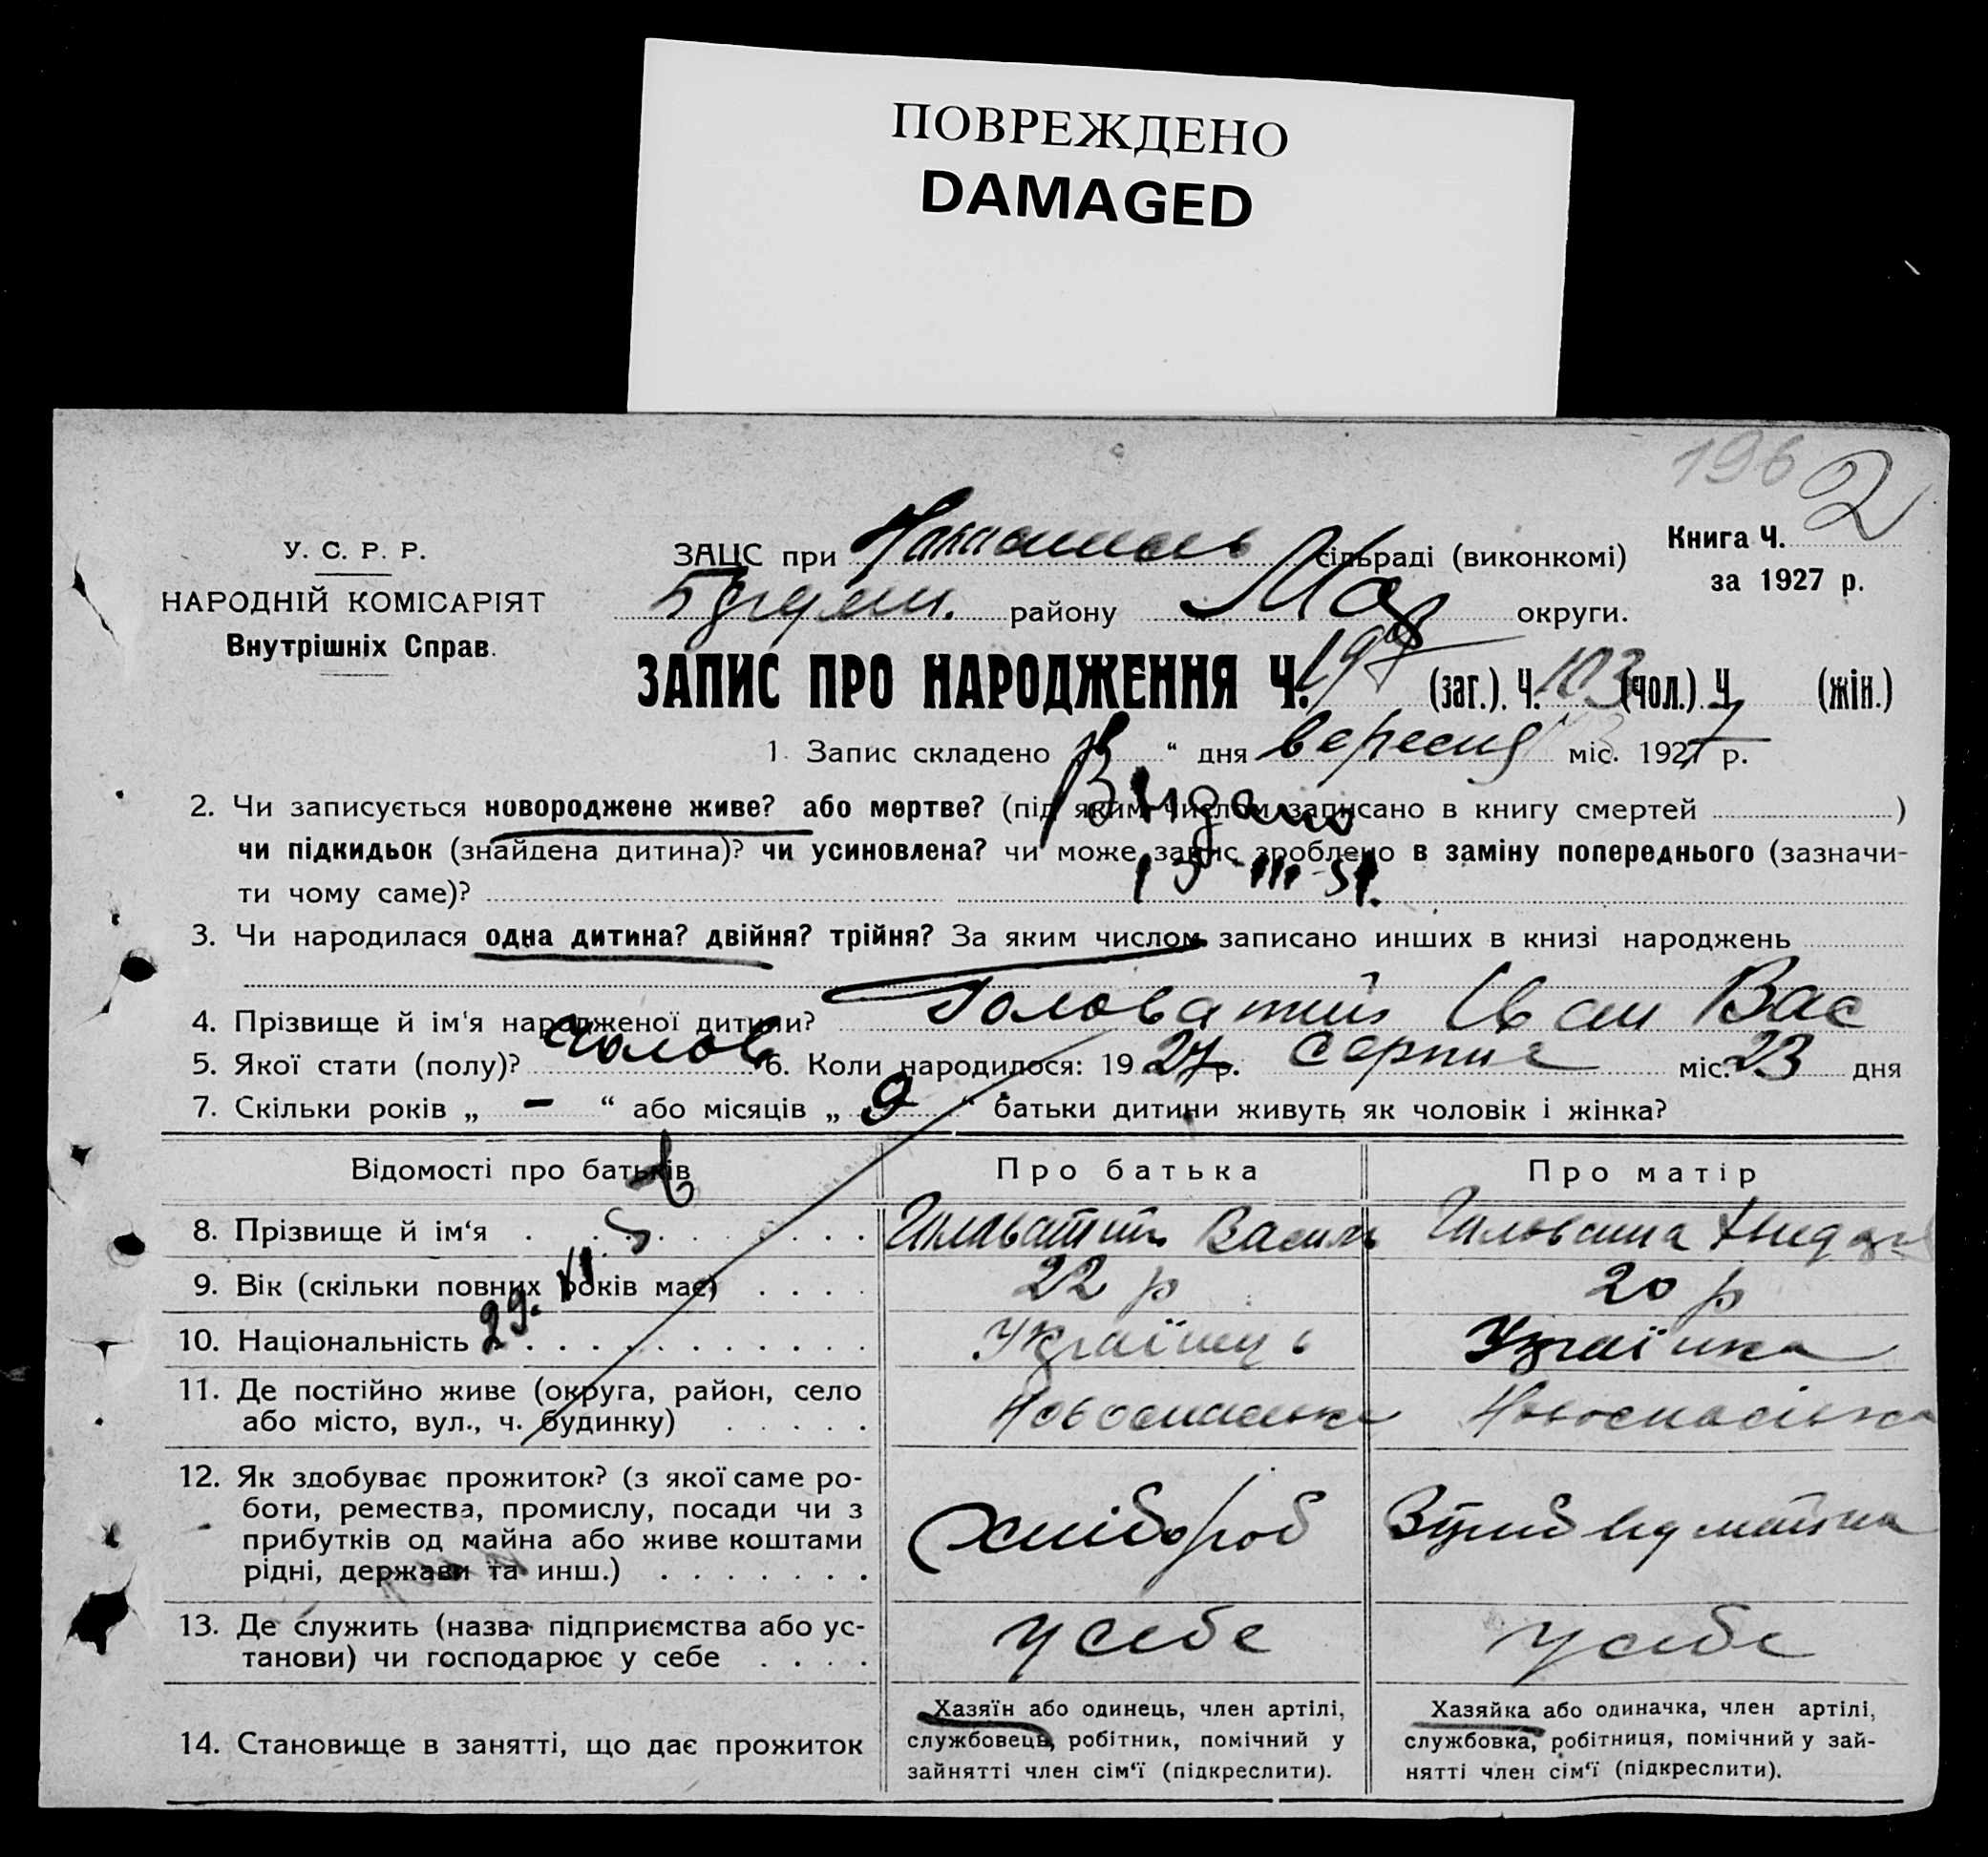 ПОВРЕЖДЕНО
DAMAGED
196 2
У. С. Р. Р.
НАРОДНІЙ КОМІСАРІЯТ
Внутрішніх Справ.
ЗАЦС при сільраді (виконкомі)
району округи.
Книга Ч.
за 1927 р.
ЗАПИС ПРО НАРОДЖЕННЯ Ч. (заг.). Ч. 103 (чол.) Ч. (жін.)
1. Запис складено “ дня вересня міс. 1927 р.
Видано
2. Чи записується новороджене живе? або мертве? (під яким числом записано в книгу смертей )
чи підкидьок (знайдена дитина)? чи усиновлена? чи може запис зроблено в заміну попереднього (зазначи-
ти чому саме)?
3. Чи народилася одна дитина? двійня? трійня? За яким числом записано инших в книзі народжень
4. Прізвище й ім'я народженої дитини? Головатий Іван Вас
5. Якої стати (полу)? Чолов 6. Коли народилося: 1927 р. Серпня міс. 23 дня
7. Скільки років „ – “ або місяців „ 9 “ батьки дитини живуть як чоловік і жінка?
Відомості про батьків Про батька Про матір
8. Прізвище й ім‘я Головатий Василь
9. Вік (скільки повних років має) 22 р 20 р
10. Національність Українець Українка
11. Де постійно живе (округа, район, село
або місто, вул., ч. будинку) Новоспаська Новоспаська
12. Як здобуває прожиток? (з якої саме ро-
боти, ремества, промислу, посади чи з
прибутків од майна або живе коштами
рідні, держави та инш.) Хлібороб
13. Де служить (назва підприємства або ус-
танови) чи господарює у себе у себе у себе
14. Становище в занятті, що дає прожиток
Хазяїн або одинець, член артілі,
службовець, робітник, помічний у
зайнятті член сім‘ї (підкреслити).
Хазяйка або одиначка, член артілі,
службовка, робітниця, помічний у зай-
нятті член сім‘ї (підкреслити).